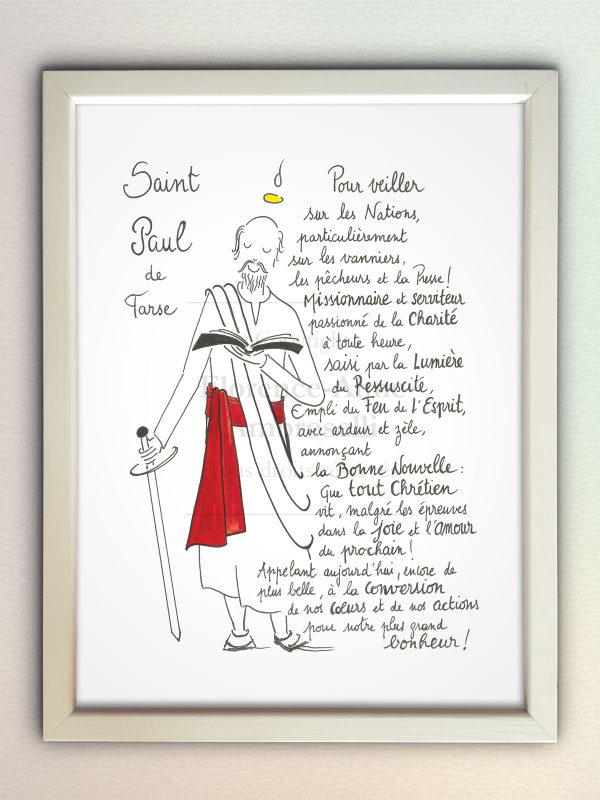 Saint
Paul
de
Tarse
Pour veiller
sur les Nations,
particulièrement
sur les vanniers,
les pêcheurs et la Presse !
Missionnaire et serviteur
passionné de la Charité
à toute heure,
saisi par la Lumière
du Ressuscité,
Empli du Feu de l'Esprit,
avec ardeur et zèle,
annonçant
la Bonne Nouvelle :
Que tout Chrétien
vit, malgré les épreuves
dans la joie et l'amour
du prochain !
Appelant aujourd'hui, encore de
plus belle, à la conversion
de nos cœurs et de nos actions
pour notre plus grand
bonheur !
Copyright
Florence-Anne
Ambroselli
Tous droits